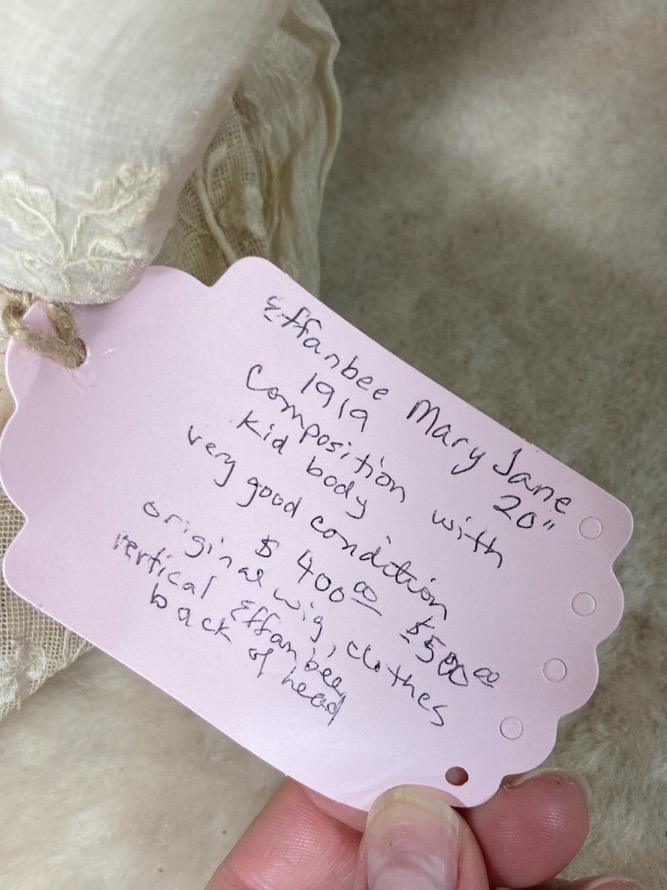 Effanbee Mary Jane
1919 20"
Composition with
kid body
very good condition
$400.00 $500.00
original wig, clothes
vertical Effanbee
back of head